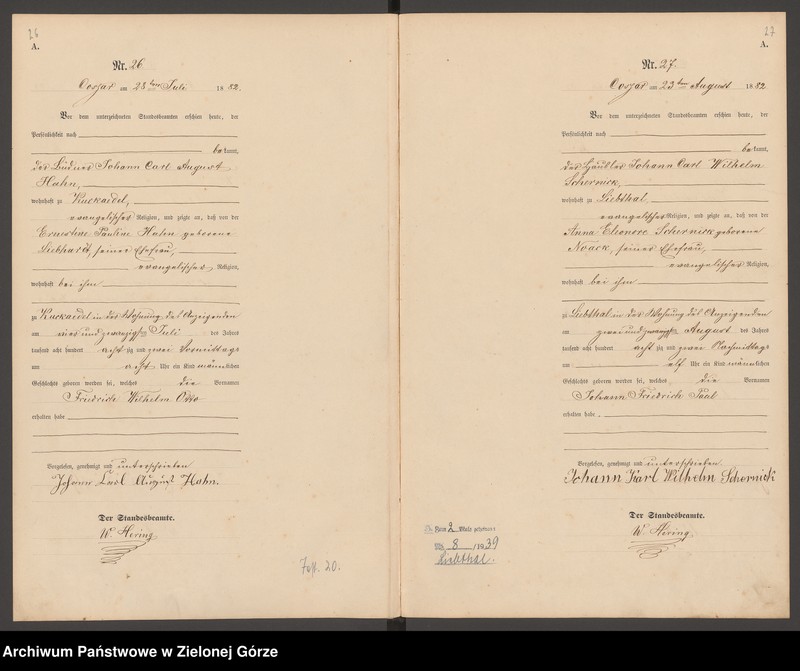 26
A.
Nr. 26
am 28ten Juli 1882.
Vor dem unterzeichneten Standesbeamten erschien heute, der
Persönlichkeit nach
bekannt,
der Büdner Johann Carl August
Hahn,
wohnhaft zu Kuckaedel,
evangelischer Religion, und zeigte an, daß von der
Ernestine Pauline Hahn geborene
Liebhardt, seiner Ehefrau,
evangelischer Religion,
wohnhaft bei ihm
zu Kuckaedel in der Wohnung des Anzeigenden
am vier und zwanzigsten Juli des Jahres
tausend acht hundert acht zig und zwei Vormittags
um acht Uhr ein Kind männlichen
Geschlechts geboren worden sei, welches die Vornamen
Friedrich Wilhelm Otto
erhalten habe
Vorgelesen, genehmigt und unterschrieben
Johann Carl August Hahn.
Der Standesbeamte.
W. Hering
20.
27
A.
Nr. 27.
am 23ten August 1882
Vor dem unterzeichneten Standesbeamten erschien heute, der
Persönlichkeit nach
bekannt,
der Häusler Johann Carl Wilhelm
Schernick,
wohnhaft zu Liebthal,
evangelischer Religion, und zeigte an, daß von der
Anna Eleonore Schernick geborene
Noack, seiner Ehefrau,
evangelischer Religion,
wohnhaft bei ihm
zu Liebthal in der Wohnung des Anzeigenden
am zwei und zwanzigsten August des Jahres
tausend acht hundert acht zig und zwei Nachmittags
um elf Uhr ein Kind männlichen
Geschlechts geboren worden sei, welches die Vornamen
Johann Friedrich Paul
erhalten habe.
Vorgelesen, genehmigt und unterschrieben
Johann Karl Wilhelm Schernick
Der Standesbeamte.
W. Hering
Zum 2 Male geheiratet
8 /1939
Liebthal.
Archiwum Państwowe w Zielonej Górze